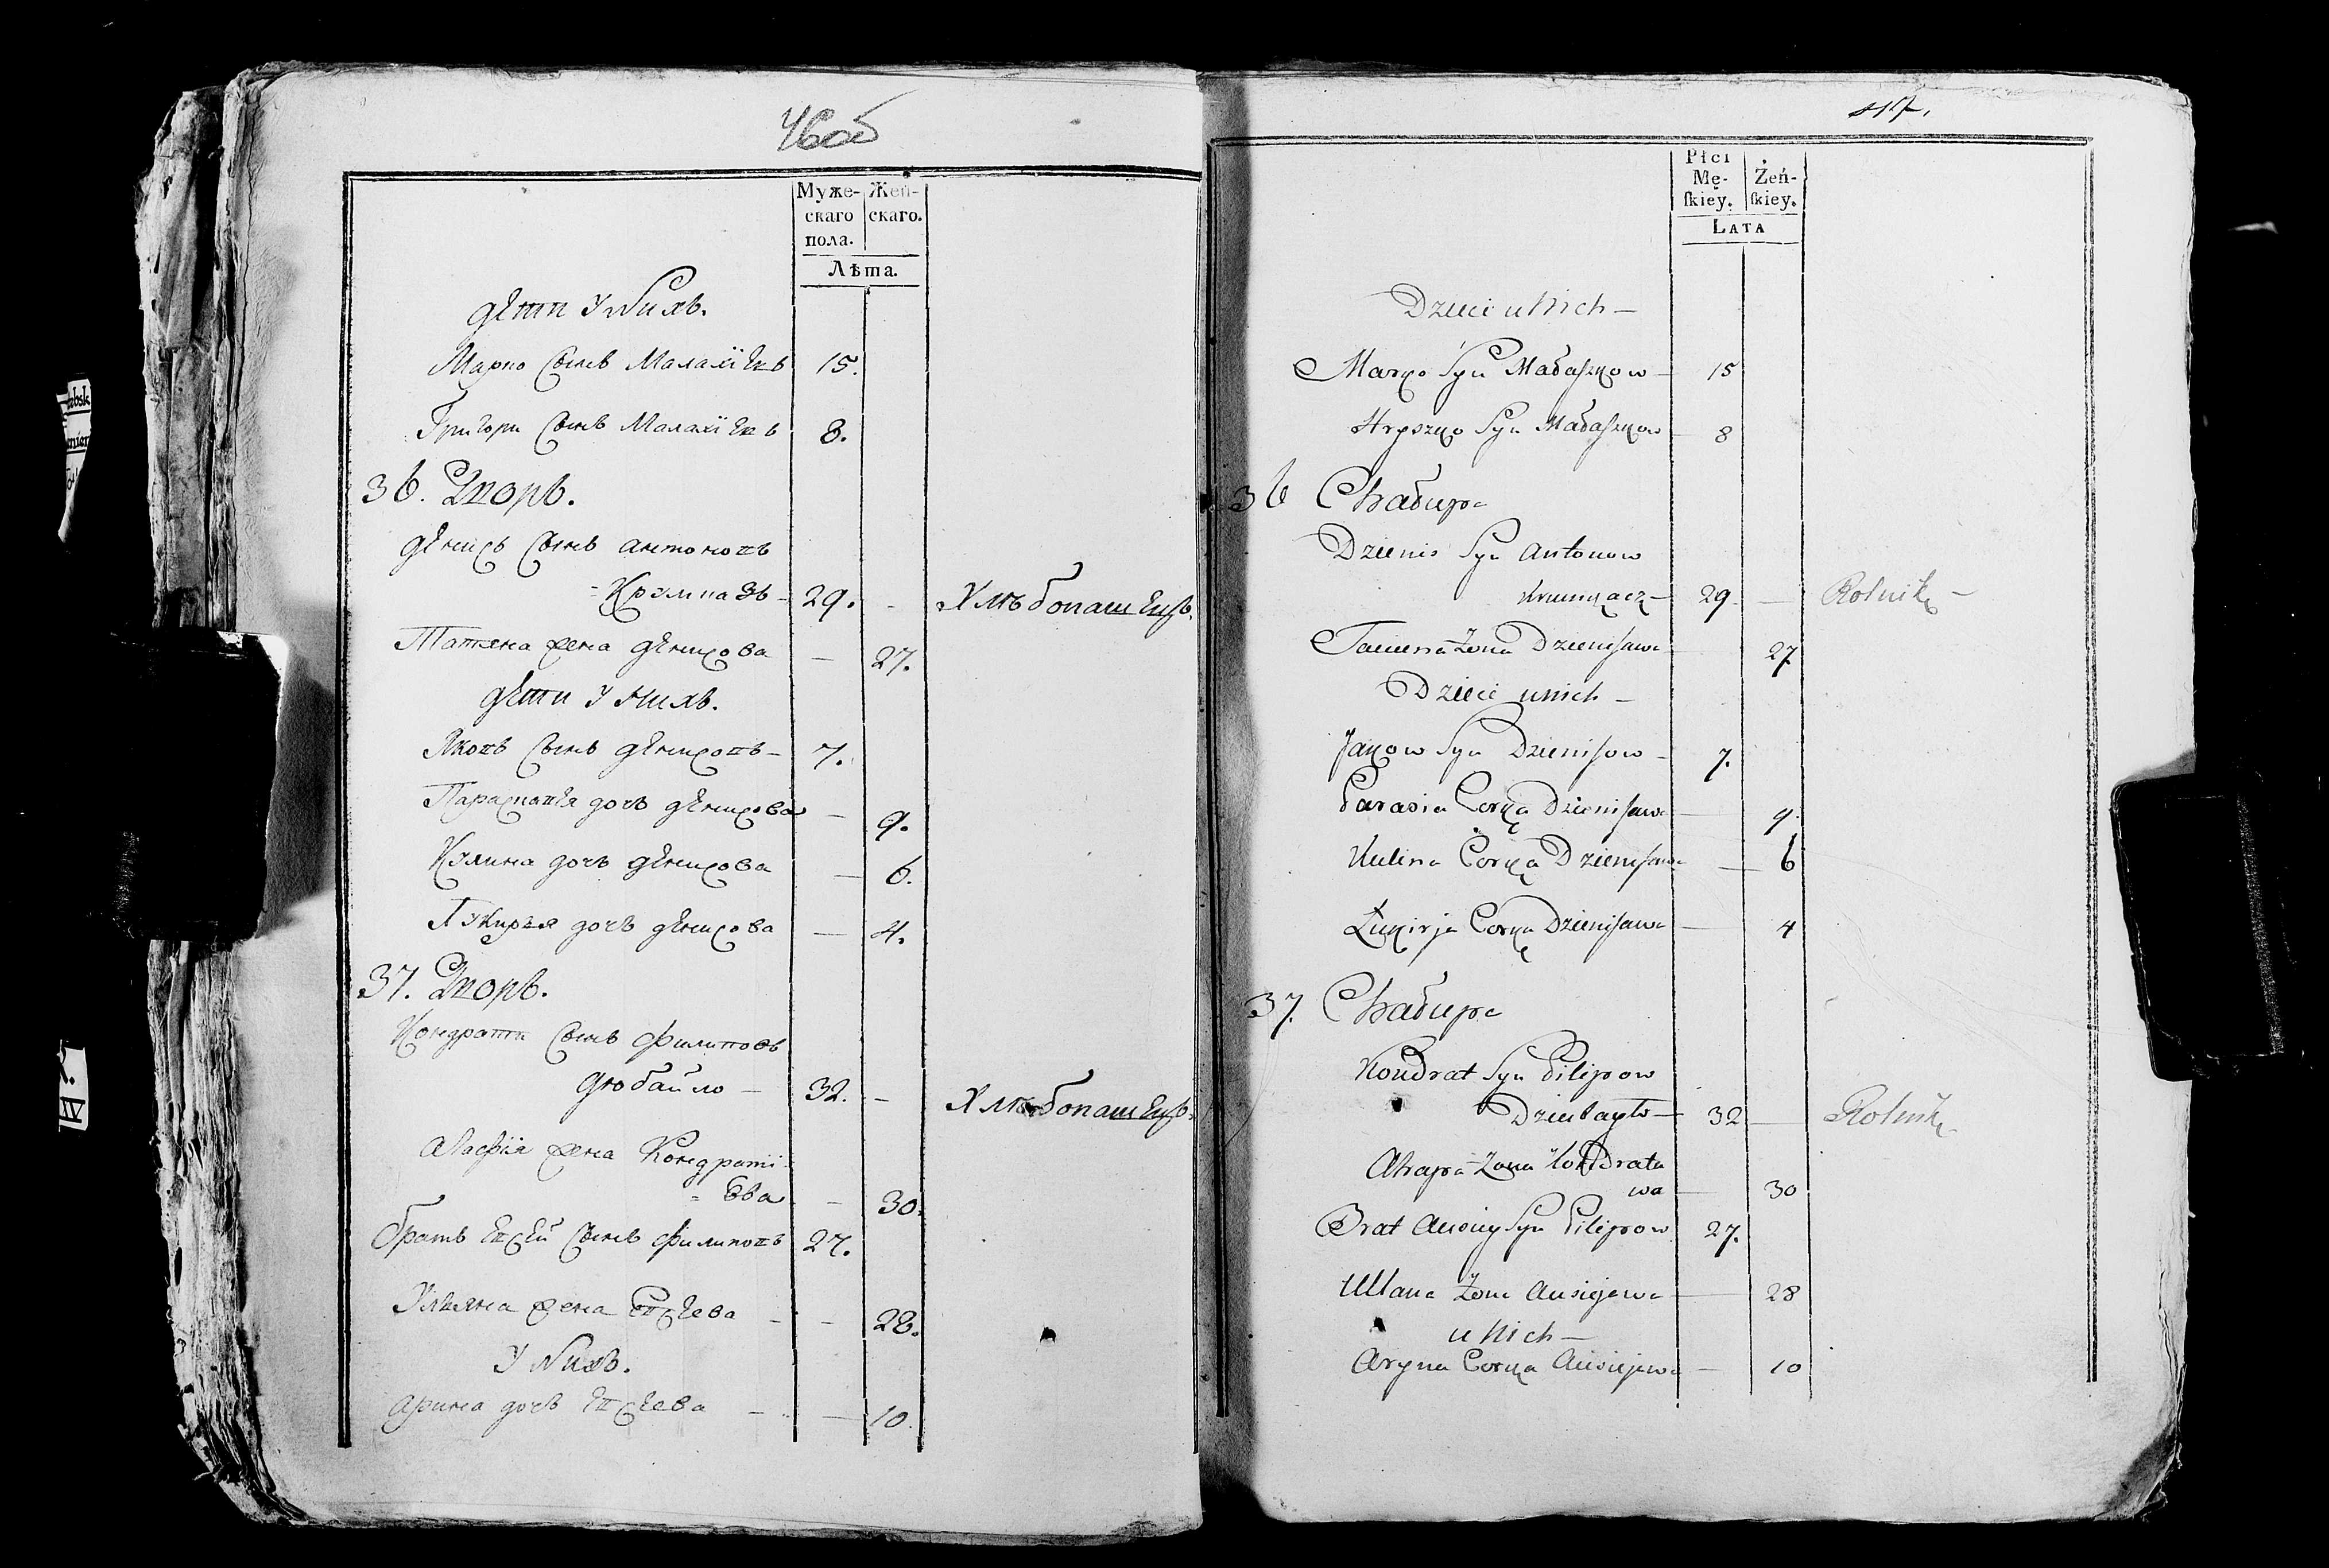 46об
Муже-
скаго
пола.
Жен-
скаго.
Лѣта.
дѣти у нихъ.
Марко сынъ Малахіевъ 15.
Григори сынъ Малахіевъ 8.
36. Дворъ.
денисъ сынъ антоновъ
=Крумкачъ - 29. - Хлѣбопашецъ.
Татяна жена денисова — 27.
дѣти у нихъ.
Яковъ сынъ денисовъ - 7.
Парасковея дочь денисова — 9.
Кулина дочь денисова — 6.
Лукиръя дочь денисова — 4.
37. Дворъ.
Кондрати сынъ филиповъ
дюбайло — 32. - Хлѣбопашецъ.
жена Кондраті
= ева — 30.
братъ евсей сынъ филиповъ 27.
Ульяна жена евсеева - - 28.
у нихъ.
арина дочь евсеева - — 10.
47.
Płci
Mę-
ſkiey.
Żeń-
ſkiey.
LATA
Dzieci u Nich —
Marko Syn Małaſzkow — 15
Hryszko Syn Małaſzkow — 8
36 Chałupa
Dzienis Syn Antonow
Krumkacz — 29 — Rolnik —
Taciena Żona Dzieniſawa — 27
Dzieci u nich —
Jakow Syn Dzieniſow - 7.
Parasia Corka Dzieniſawa — 9
Kulina Corka Dzieniſawa — 6
Łukirja Corka Dzieniſawa — 4
37. Chałupa
Kondrat Syn Pilipow
Dziubayło — 32 — Rolnik
Ahapa Żona Kondrata
wa — 30
Brat Ausiey Syn Pilipow 27.
Ullana Żona Ausiejewa — 28
u Nich —
Aryna Corka Ausiejewa — 10